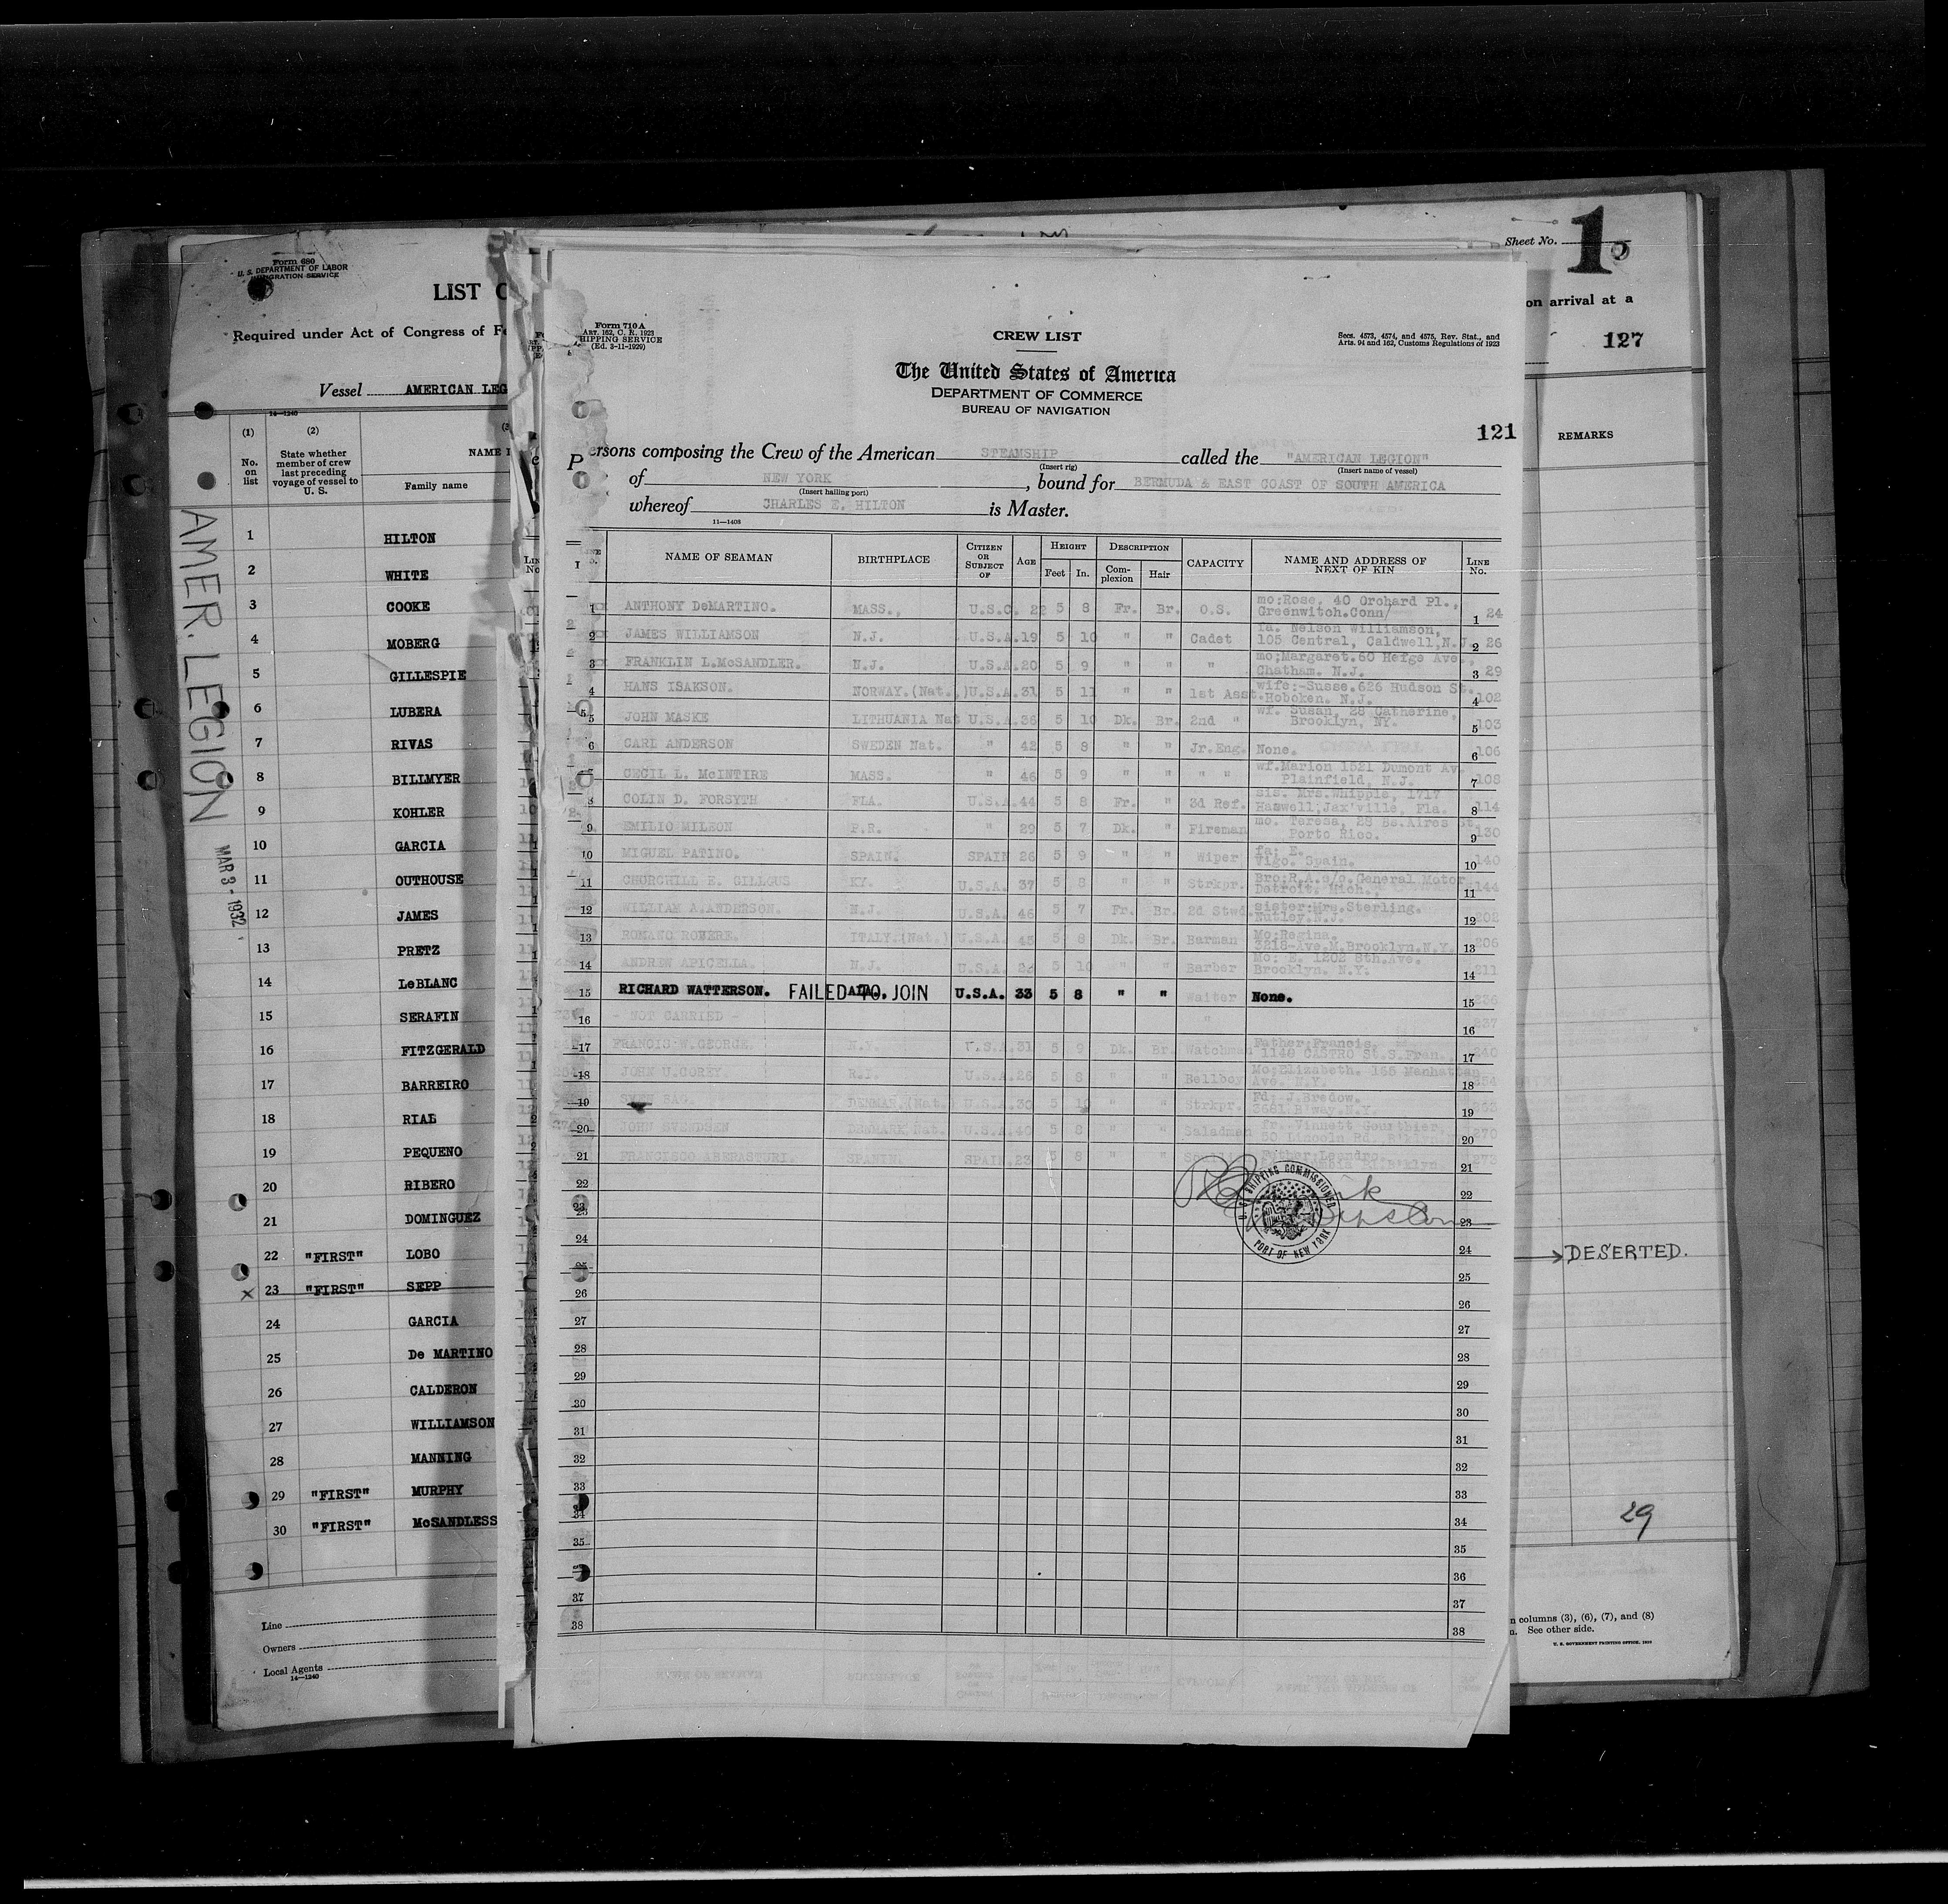 Form 680
U. S. DEPARTMENT OF LABOR
IMMIGRATION SERVICE
LIST
Required under Act of Congress of
Vessel AMERICAN LEG
14—1240
(1) No. on list
(2) State whether member of crew last preceding voyage of vessel to U. S.
Family name
AMER. LEGION
MAR 3 - 1932
1 HILTON
2 WHITE
3 COOKE
4 MOBERG
5 GILLESPIE
6 LUBERA
7 RIVAS
8 BILLMYER
9 KOHLER
10 GARCIA
11 OUTHOUSE
12 JAMES
13 PRETZ
14 LeBLANC
15 SERAFIN
16 FITZGERALD
17 BARREIRO
18 RIAL
19 PEQUENO
20 RIBERO
21 DOMINGUEZ
22 "FIRST" LOBO
x 23 "FIRST" SEPP
24 GARCIA
25 De MARTINO
26 CALDERON
27 WILLIAMSON
28 MANNING
29 "FIRST" MURPHY
30 "FIRST" McSANDLESS
Line
Owners
Local Agents
14—1240
Form 710A
ART. 162, C. R. 1923
SHIPPING SERVICE
(Ed. 3-11-1929)
CREW LIST
Secs. 4573, 4574, and 4575, Rev. Stat., and
Arts. 94 and 162, Customs Regulations of 1923
The United States of America
DEPARTMENT OF COMMERCE
BUREAU OF NAVIGATION
121
Persons composing the Crew of the American STEAMSHIP called the "AMERICAN LEGION"
(Insert rig) (Insert name of vessel)
of NEW YORK, bound for BERMUDA & EAST COAST OF SOUTH AMERICA
(Insert hailing port)
whereof CHARLES E. HILTON is Master.
11—1408
NAME OF SEAMAN BIRTHPLACE CITIZEN OR SUBJECT OF AGE HEIGHT Feet In. DESCRIPTION Complexion Hair CAPACITY NAME AND ADDRESS OF NEXT OF KIN LINE No.
1 ANTHONY DeMARTINO. MASS., U.S.C. 22 5 8 Fr. Br. O.S. mo:Rose. 40 Orchard Pl., Greenwitch.Conn/ 1 24
2 JAMES WILLIAMSON N.J. U.S.A. 19 5 10 " " Cadet fa. Nelson Williamson, 105 Central, Caldwell,N.J. 2 26
3 FRANKLIN L.McSANDLER. N.J. U.S.A. 20 5 9 " " " mo;Margaret.60 Hefge Ave., Chatham. N.J. 3 29
4 HANS ISAKSON. NORWAY.(Nat.) U.S.A. 31 5 11 " " 1st Asst. wife:-Susse.626 Hudson St. Hoboken. N.J. 4 102
5 JOHN MASKE LITHUANIA Nat U.S.A. 36 5 10 Dk. Br. 2nd " wf. Susan, 28 Catherine, Brooklyn, NY. 5 103
6 CARL ANDERSON SWEDEN Nat. " 42 5 8 " " Jr.Eng. None. 6 106
7 CECIL L. McINTIRE MASS. " 46 5 9 " " " " wf.Marion 1521 Dumont Av. Plainfield, N.J. 7 108
8 COLIN D. FORSYTH FLA. U.S.A. 44 5 8 Fr. " 3d Ref. sis. Mrs.Whipple, 1717 Haswell,Jax'ville, Fla. 8 114
9 EMILIO MILEON P.R. " 29 5 7 Dk. " Fireman mo. Teresa, 28 Bs.Aires St. Porto Rico. 9 130
10 MIGUEL PATINO. SPAIN. SPAIN 26 5 9 " " Wiper fa: E. Vigo. Spain. 10 140
11 CHURCHILL E. GILLGUS KY. U.S.A. 37 5 8 " " Strkpr. Bro:R.A.c/o.General Motor Detroit. Mich. 11 144
12 WILLIAM A.ANDERSON. N.J. U.S.A. 46 5 7 Fr. Br. 2d Stwd. sister:Mrs.Sterling. Nutley.N.J. 12 202
13 ROMANO ROVERE. ITALY.(Nat.) U.S.A. 45 5 8 Dk. Br. Barman Mo:Regina. 3218-Ave.M.Brooklyn.N.Y. 13 206
14 ANDREW APICELLA. N.J. U.S.A. 5 10 " " Barber Mo: E. 1202 8th.Ave. Brooklyn. N.Y. 14 211
15 RICHARD WATTERSON. FAILED TO JOIN U.S.A. 33 5 8 " " Waiter None. 15 236
16 - NOT CARRIED - " 16 237
17 FRANCIS W.GEORGE. N.Y. U.S.A. 31 5 9 Dk. Br. Watchman Father:Francis. 1140 CASTRO St.S.Fran. 17 240
18 JOHN U.COREY. R.I. U.S.A. 26 5 8 " " Bellboy Mo:Elizabeth. 165 Manhattan Ave. N.Y. 18
19 BAG. DENMAR.(Nat.) U.S.A. 30 5 10 " " Strkpr. Fd: J.Bredow. 3681 B'way.N.Y. 19
20 JOHN SVENDSEN DENMARK Nat. U.S.A. 40 5 8 " " Saladman fr. Vinnett Gourthier, 50 Lincoln Rd. 20 270
21 FRANCISCO ABERASTURI. SPANIN. SPAIN 23 5 8 " " Father:Leandro. 21 273
22 22
23 23
24 24
25 25
26 26
27 27
28 28
29 29
30 30
31 31
32 32
33 33
34 34
35 35
36
37 37
38 38
U. S. SHIPPING COMMISSIONER
PORT OF NEW YORK
Sheet No. 1
on arrival at a
127
REMARKS
DESERTED.
29
n columns (3), (6), (7), and (8)
n. See other side.
U. S. GOVERNMENT PRINTING OFFICE